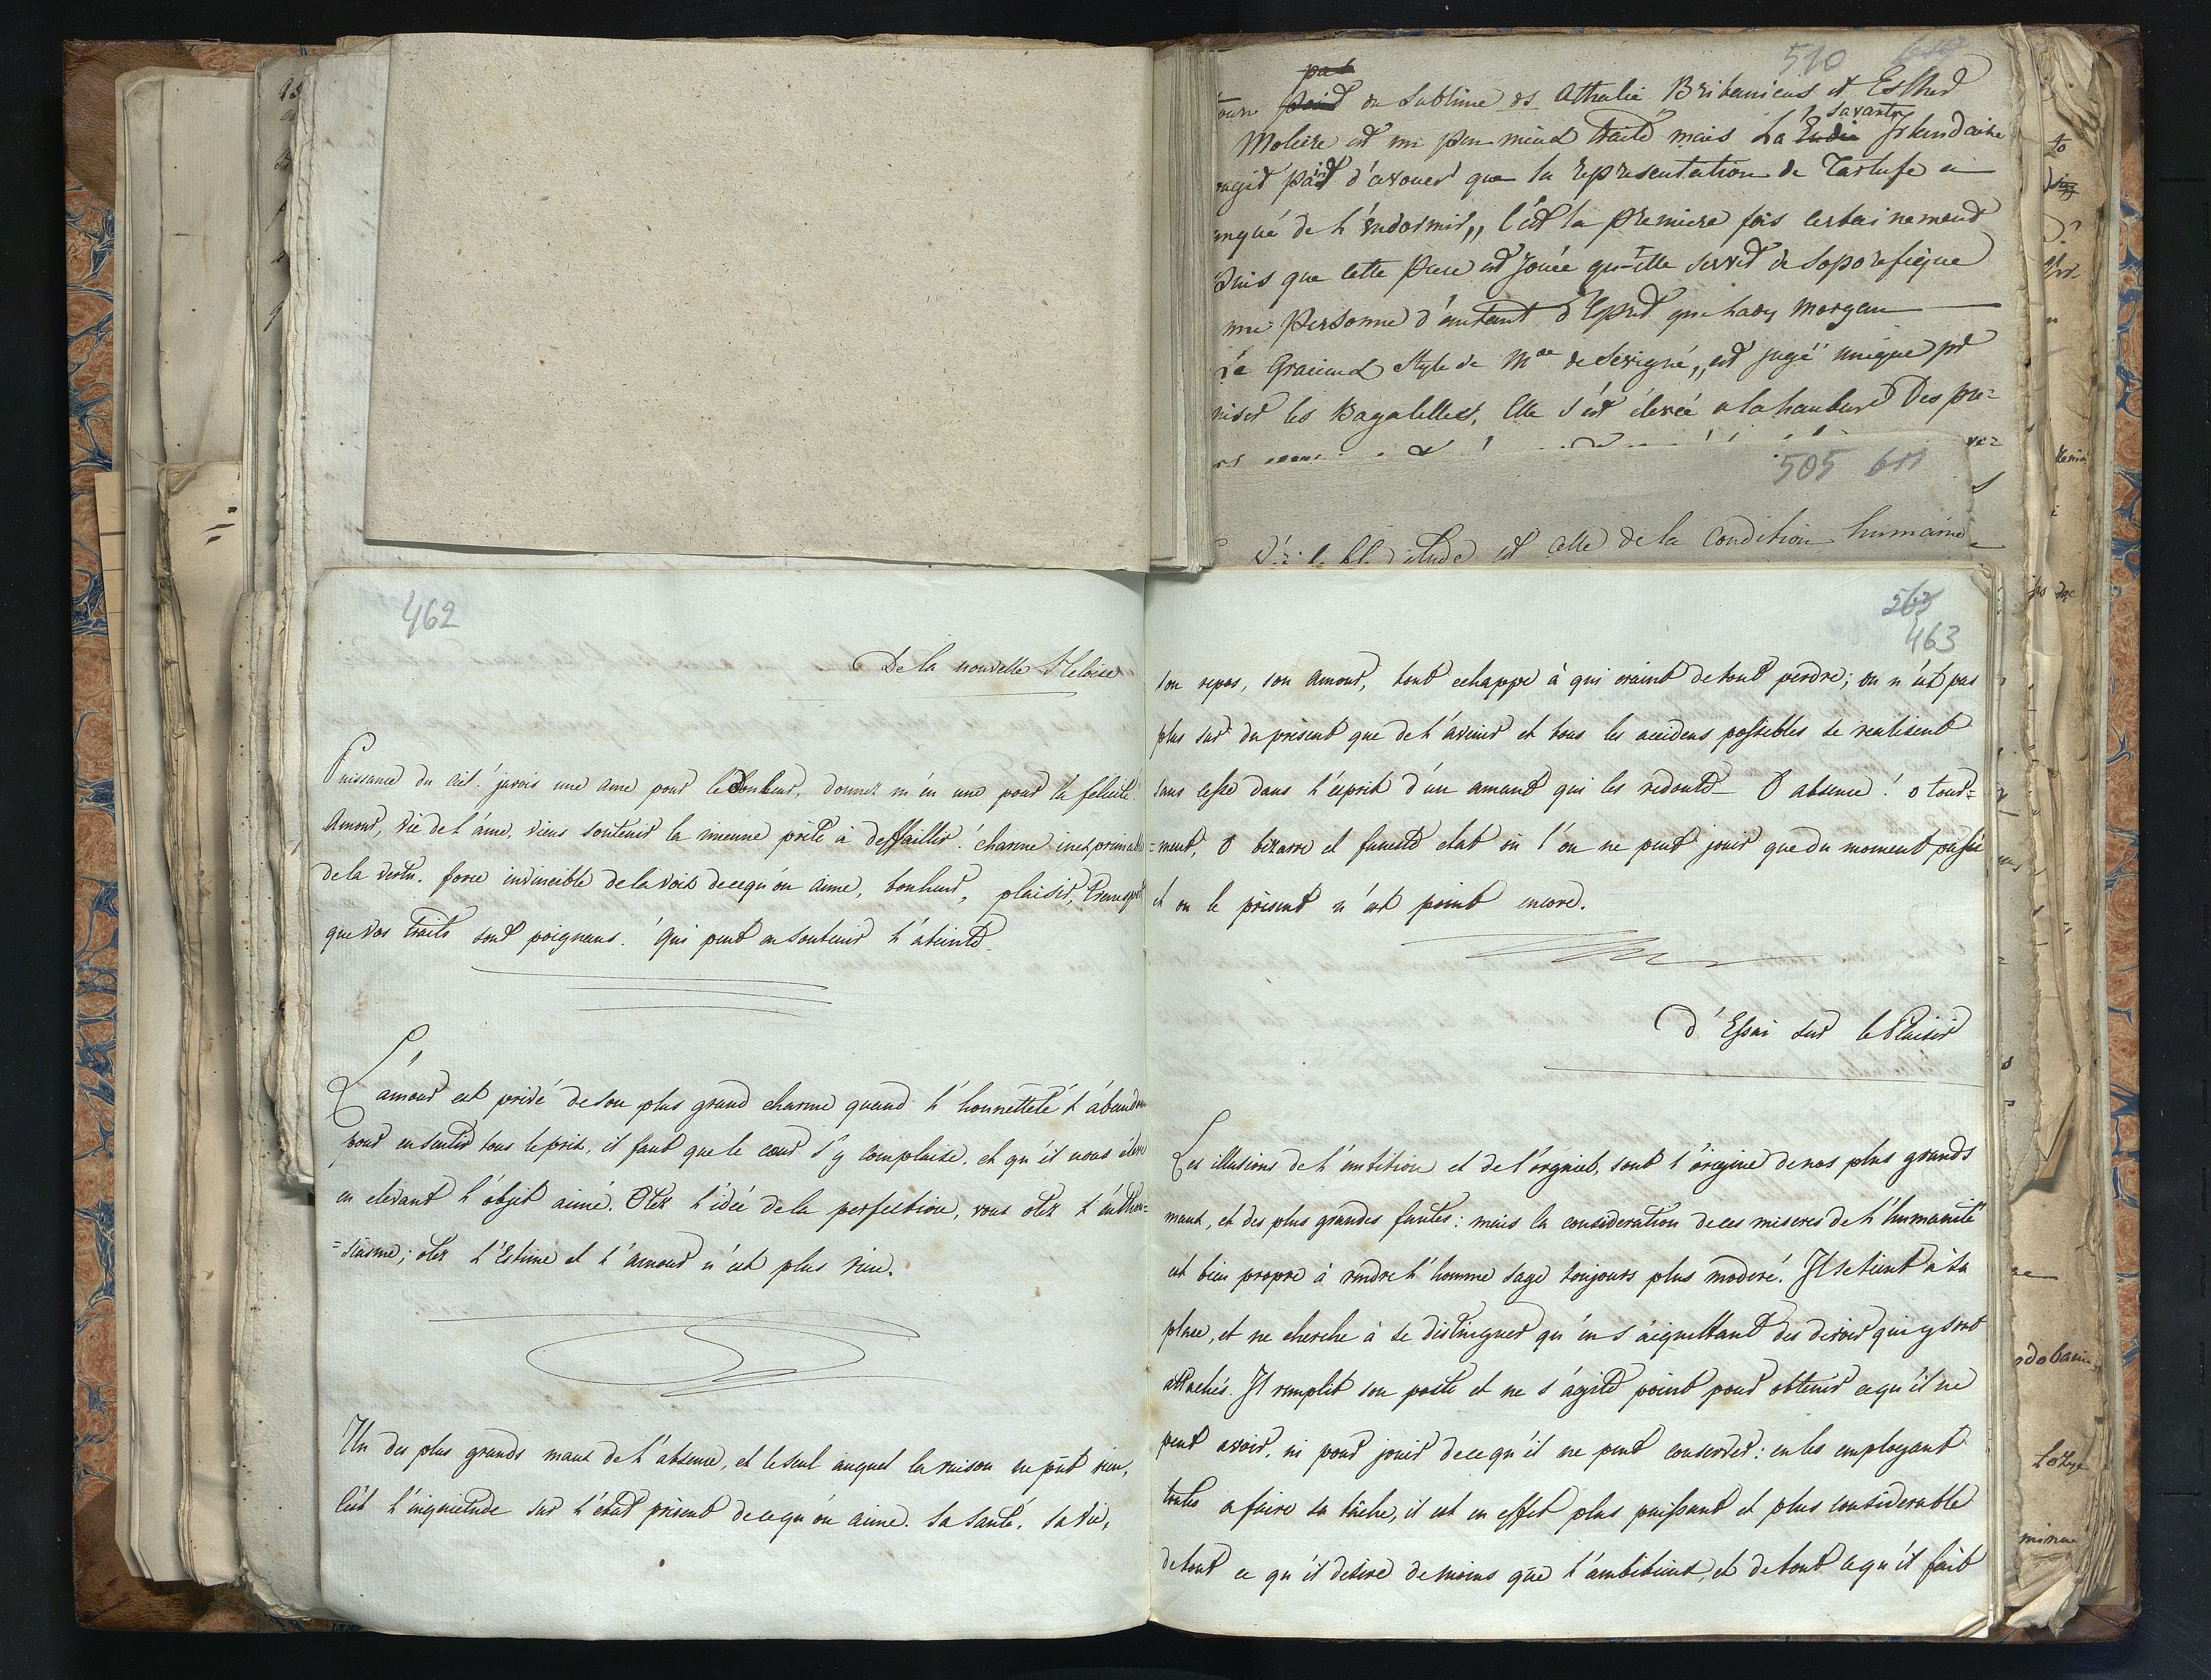 510
pas
point du sublime ds Athalie Britanicus et Esther
savante
Moliere est un peu mieux traité mais La Irlandaise
rougit point d'avouer que la représentation de Tartufe a
anqué de l'endormir,, c'est la premiere fois certainement
puis que cette Piece est Jouée qu-elle servit de soporefique
une Personne d'autant d'Esprit que Lady Morgan
Le Gracieux Style de Mde de Sévigné,, est jugé unique pr
niser les Bagatelles, Elle s'est élevée a la hauteur Des pre=
505 611
etude est celle de la condition humaine
462
De la nouvelle Heloise
Puissance du ciel! j'avois une ame pour le bonheur, donnez m'en une pour la felicité.
Amour, vie de l'âme, viens soutenir la mienne prête à deffaillir! charme inexprimable
de la vertu. force invincible de la voix de ce qu'on aime, bonheur, plaisir, transport
que vos traits sont poignans. Qui peut en soutenir l'ateinte.
L'amour est privé de son plus grand charme quand l'honnetteté l'abandonne
pour en sentir tous le prix, il faut que le cœur s'y complaise, et qu'il nous éleve
en elevant l'objet aimé. Otez l'idée de la perfection, vous otez l'enthou=
=siasme; otez l'Estime et l'amour n'est plus rien.
Un des plus grands maux de l'absence, et le seul auquel la raison ne peut rien,
c'est l'inquietude sur l'état présent de ce qu'on aime. Sa santé, sa vie,
563
463
son repos, son amour, tout echappe à qui craint de tout perdre; on n'est pas
plus sur du présent que de l'avenir et tous les accidens possibles se realisent
sans cesse dans l'esprit d'un amant qui les redoute O absence! o tour=
=ment, o bizarre et funeste etat où l'on ne peut jouir que du moment passé
et ou le présent n'est point encore.
d'Essai sur le Plaisir
Les illusions de l'ambition et de l'orgueil, sont l'origine de nos plus grands
maux, et des plus grandes fautes: mais la consideration de ces miseres de l'humanité
est bien propre à rendre l'homme sage toujours plus moderé. Il se tient à sa
place, et ne cherche à se distinguer qu'en s'aiquittant des devoirs qui y sont
attachés. Il remplit son poste et ne s'agite point pour obtenir ce qu'il ne
peut avoir, ni pour jouir de ce qu'il ne peut conserver: en les employant
toutes a faire sa tâche, il est en effet plus puissant et plus considerable
de tout ce qu'il desire de moins que l'ambitieux, et de tout ce qu'il fait